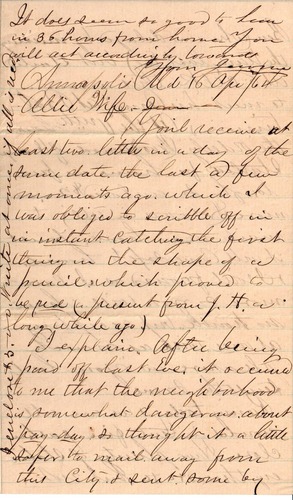 It does seem so good to hear
in 36 hours from home. You
will act accordingly towards
Annapolis Md 16 Apr/64
Allie Wife.
You'll receive at
least two letter in a day of the
same date. the last a few
moments ago. which I
was obliged to scribble off in
an instant catching the first
thing in the shape of a
pencil which proved to
be red a present from J. H. a
long while ago.)
I explain. After being
paid off last Eve, it occured
to me that the neighborhood
is somewhat dangerous about
pay-day so thought it a little
safer to mail away from
this City & sent some by
I enclose $5. Write at once if all is red.